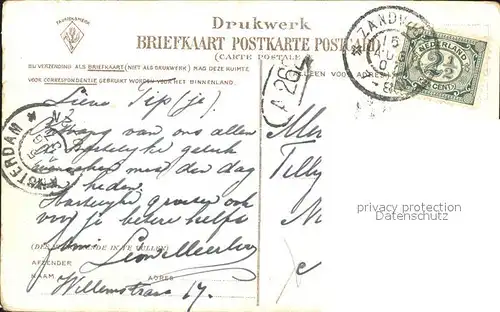 Drukwerk
BRIEFKAART POSTKARTE POSTCARD
(CARTE POSTALE)
BIJ VERZENDING ALS BRIEFKAART (NIET ALS DRUKWERK) MAG DEZE RUIMTE
VOOR CORRESPONDENTIE GEBRUIKT WORDEN VOOR HET BINNENLAND.
ALLEEN VOOR ADRES
ZANDVOO
NEDERLAND
2½
CENT
A 26
STERDAM
Lieve Tip(je)
Ontvang van ons allen
de hartelijke geluk
wenschen met den dag
van heden.
Hartelijk groeten ook
voor je betere helft
AFZENDER
Leon Meerloo
NAAM
ADRES
Willemstraat 17.
Tilly
privacy protection
Datenschutz